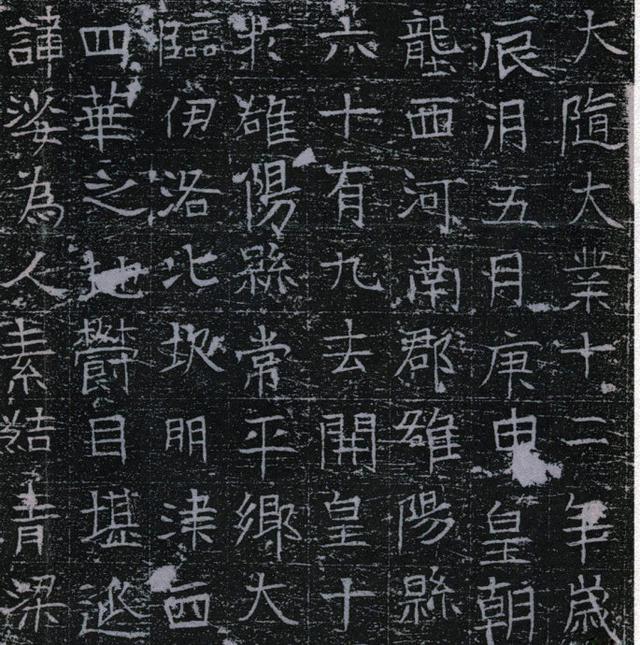 大隨大業十二年歲
辰五月庚申皇朝
西河南郡雒陽縣
六十有九去開皇十
於雒陽縣常平鄉大
臨伊洛北坎明津西
四華之地鬱目堪
為人素結青梁